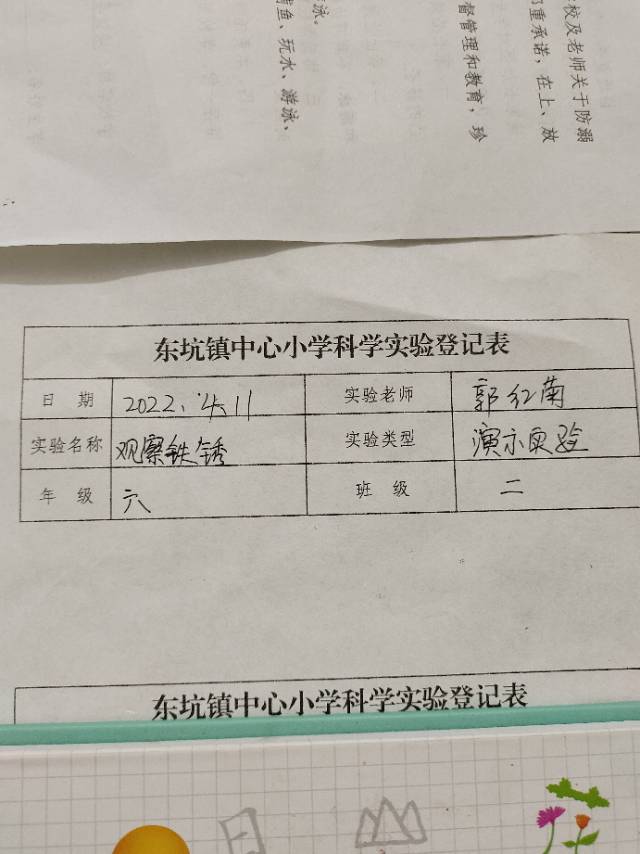 校及老师关于防溺
重承诺，在上、放
督管理和教育，珍
泳。
鱼、玩水、游泳、
东坑镇中心小学科学实验登记表
日 期 2022.4.11 实验老师 郭红菊
实验名称 观察铁锈 实验类型 演示实验
年 级 六 班 级 二
东坑镇中心小学科学实验登记表